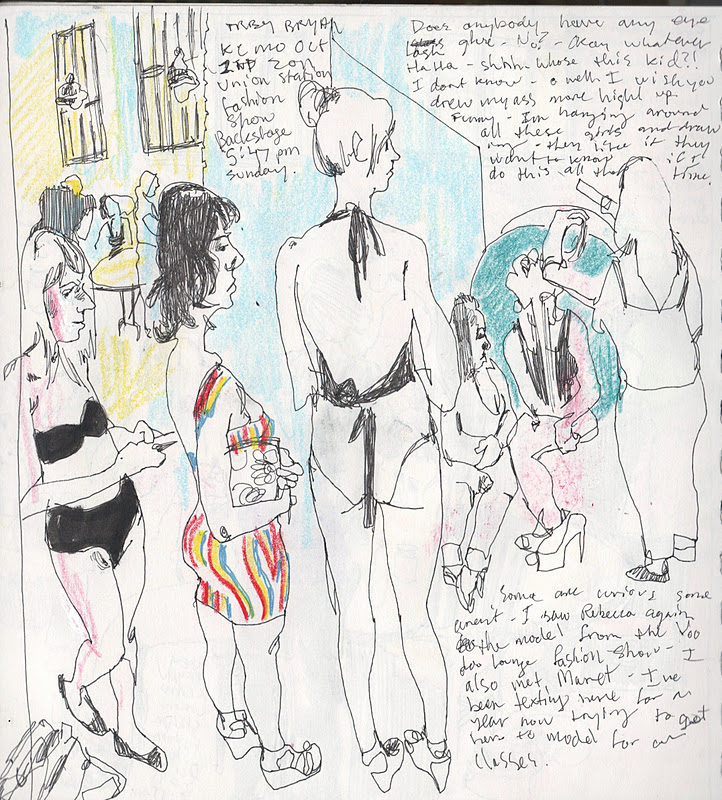 TRBY BRYAN
KC MO Oct
2ND 2011
Union Station
Fashion
Show
Backstage
5:47 pm
Sunday.
Does anybody have any eye
lash glue - No? - Okay whatever
Ha Ha - shhh. Whose this kid?!
I dont know - o well I wish you
drew my ass more hight up
Funny - I'm hanging around
all these girls and draw
ing - then like it they
want to know if I
do this all the time.
Some are curious some
arent - I saw Rebecca again
the model from the Voo
doo lounge fashion show - I
also met - I've
been texting here for a
year now trying to get
here to model for our
classes.